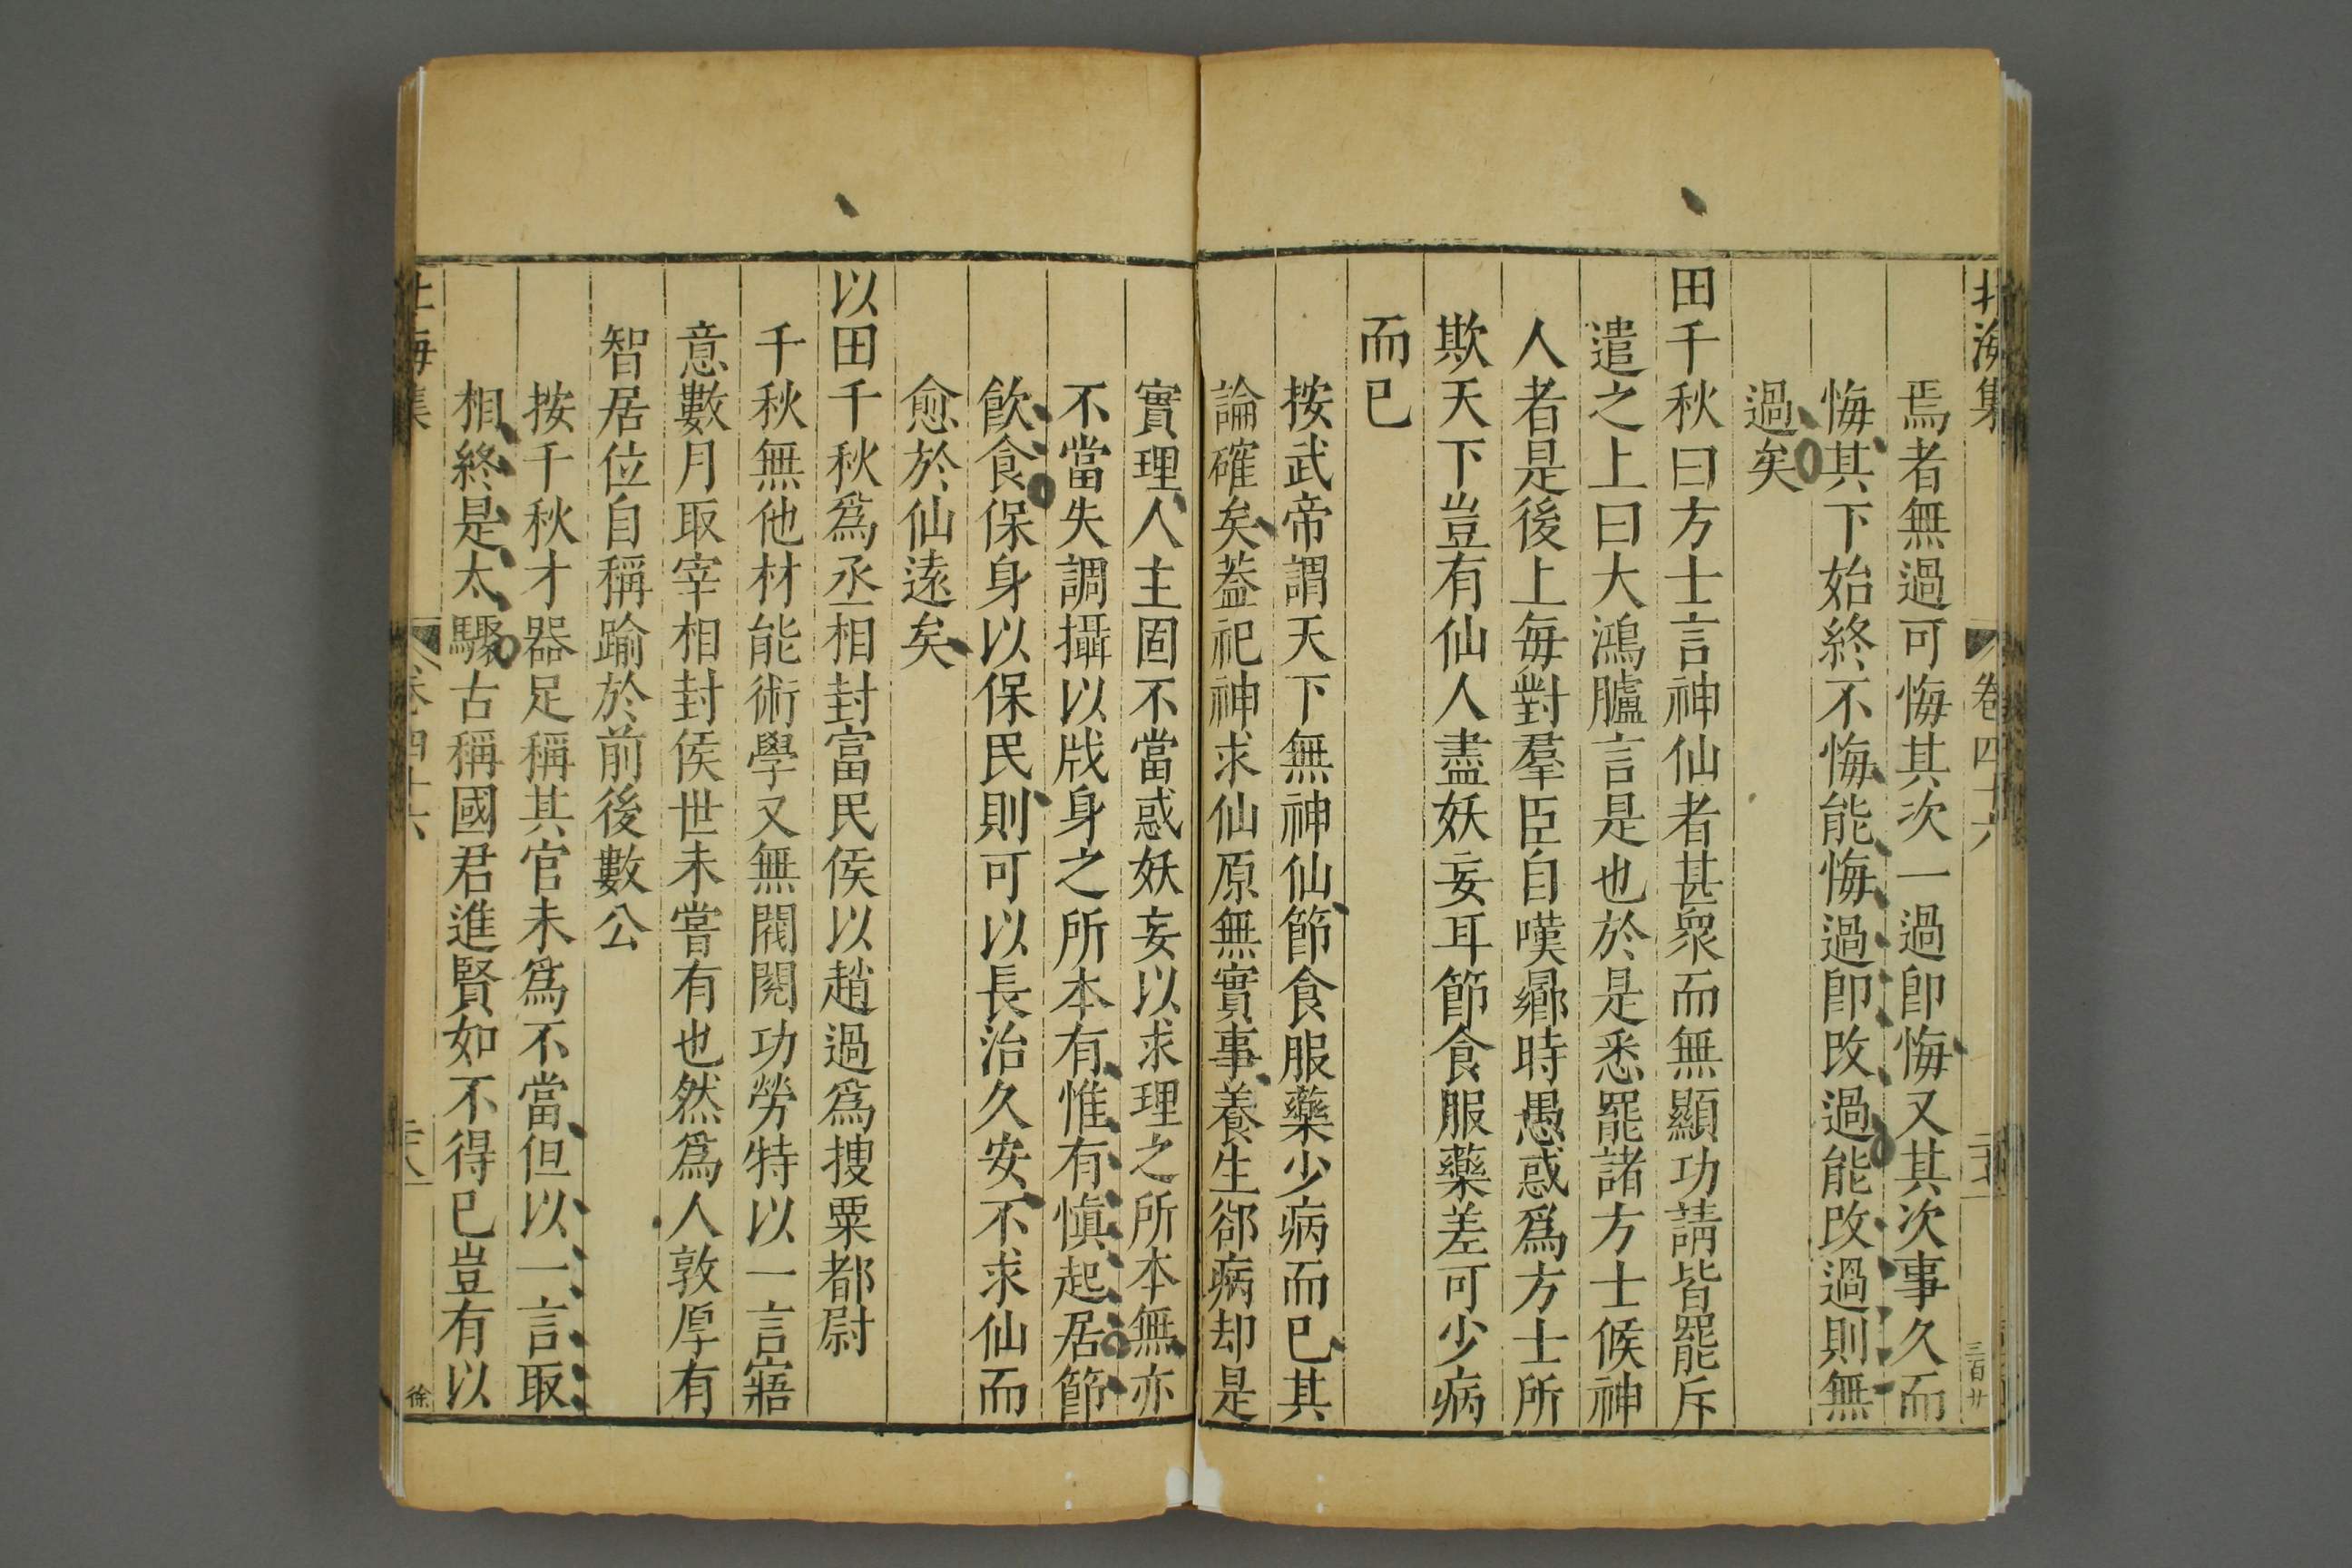 北海集 卷四十六 三百廿
焉者無過可悔其次一過卽悔又其次事久而
悔其下始終不悔能悔過卽改過能改過則無
過矣
田千秋曰方士言神仙者甚衆而無顯功請皆罷斥
遣之上曰大鴻臚言是也於是悉罷諸方士候神
人者是後上每對羣臣自嘆曏時愚惑爲方士所
欺天下豈有仙人盡妖妄耳節食服藥差可少病
而已
按武帝謂天下無神仙節食服藥少病而已其
論確矣葢祀神求仙原無實事養生郤病却是
實理人主固不當惑妖妄以求理之所本無亦
不當失調攝以戕身之所本有惟有愼起居節
飲食保身以保民則可以長治久安不求仙而
愈於仙遠矣
以田千秋爲丞相封富民侯以趙過爲搜粟都尉
千秋無他材能術學又無閥閱功勞特以一言寤
意數月取宰相封侯世未嘗有也然爲人敦厚有
智居位自稱踰於前後數公
按千秋才器足稱其官未爲不當但以一言取
相終是太驟古稱國君進賢如不得已豈有以
北海集 卷四十六 二十八 徐